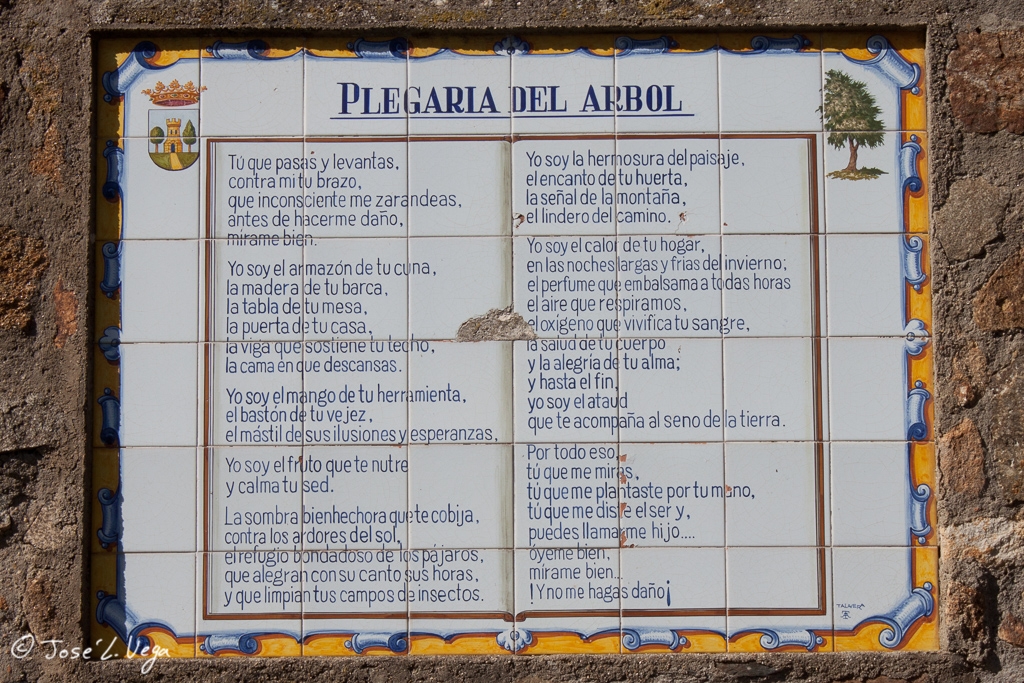 PLEGARIA DEL ARBOL
Tú que pasas y levantas,
contra mi tu brazo,
que inconsciente me zarandeas,
antes de hacerme daño,
mírame bien.
Yo soy el armazón de tu cuna,
la madera de tu barca,
la tabla de tu mesa,
la puerta de tu casa,
la viga que sostiene tu techo,
la cama en que descansas.
Yo soy el mango de tu herramienta,
el bastón de tu vejez,
el mástil de sus ilusiones y esperanzas,
Yo soy el fruto que te nutre
y calma tu sed.
La sombra bienhechora que te cobija,
contra los ardores del sol,
el refugio bondadoso de los pájaros,
que alegran con su canto sus horas,
y que limpian tus campos de insectos.
Yo soy la hermosura del paisaje,
el encanto de tu huerta,
la señal de la montaña,
el lindero del camino.
Yo soy el calor de tu hogar,
en las noches largas y frias del invierno;
el perfume que embalsama a todas horas
el aire que respiramos,
el oxigeno que vivifica tu sangre,
la salud de tu cuerpo
y la alegría de tu alma;
y hasta el fin,
yo soy el ataud
que te acompaña al seno de la tierra.
Por todo eso,
tú que me miras,
tú que me plantaste por tu mano,
tú que me diste el ser y,
puedes llamarme hijo....
óyeme bien,
mírame bien...
!Y no me hagas daño¡
TALAVERA
© José L. Vega